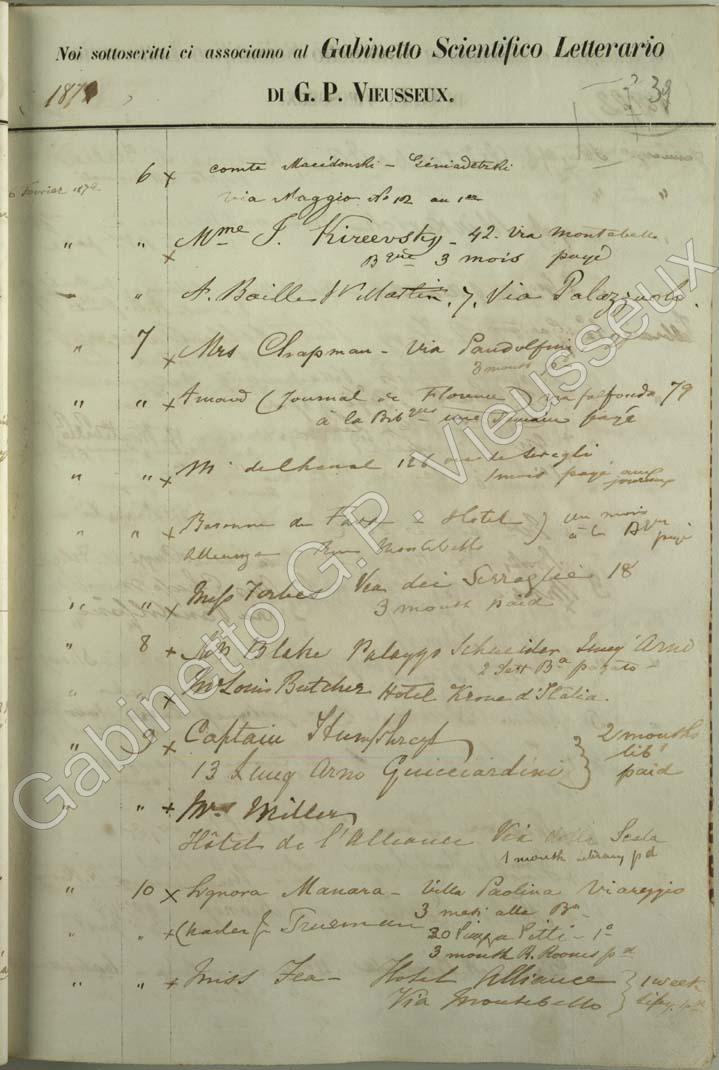 Noi sottoscritti ci associamo al Gabinetto Scientifico Letterario
DI G. P. VIEUSSEUX.
187 39
6 x comte Macédonski - Géniadetzki
6 Février 1872
via Maggio No 12 au 1er
" " x Mme J. Kireevsky - 42. Via Montebello
Bque 3 mois payé
" A. Baille 7, Via Palazzuolo.
" 7 x Mrs Chapman - Via Pandolfini
3 months
" " x Arnaud (Journal de Florence) via falfonda 79
à la Bibque une semaine payé
" " x Mr de Chenal 126 Serragli
1 mois payé aux journaux
" " x Baronne de Hotel un mois
à la Bque payé
Rue Montebello
" " x Miss Forbes Via dei Serraglie 18
3 month paid
" 8 x Blake Palazzo Schneider Lung' Arno
2 Sett Ba pagato
" x Mr Louis Butcher Hotel Krone d'Italia.
" 9 x Captain Humphreys 2 months
13 Lung Arno Guicciardini lib' paid
" " x Mrs Miller
Hôtel de l'Alliance Via della Scala
1 month pd
" 10 x Signora Manara - Villa Paolina Viareggio
3 mesi alla Ba
" " x Charles J Trueman 30 Piazza Pitti - 1o
3 month R. Rooms pd
" " x Miss Fea - Hotel Alliance 1 week
Via Montebello
Gabinetto G.P. Vieusseux